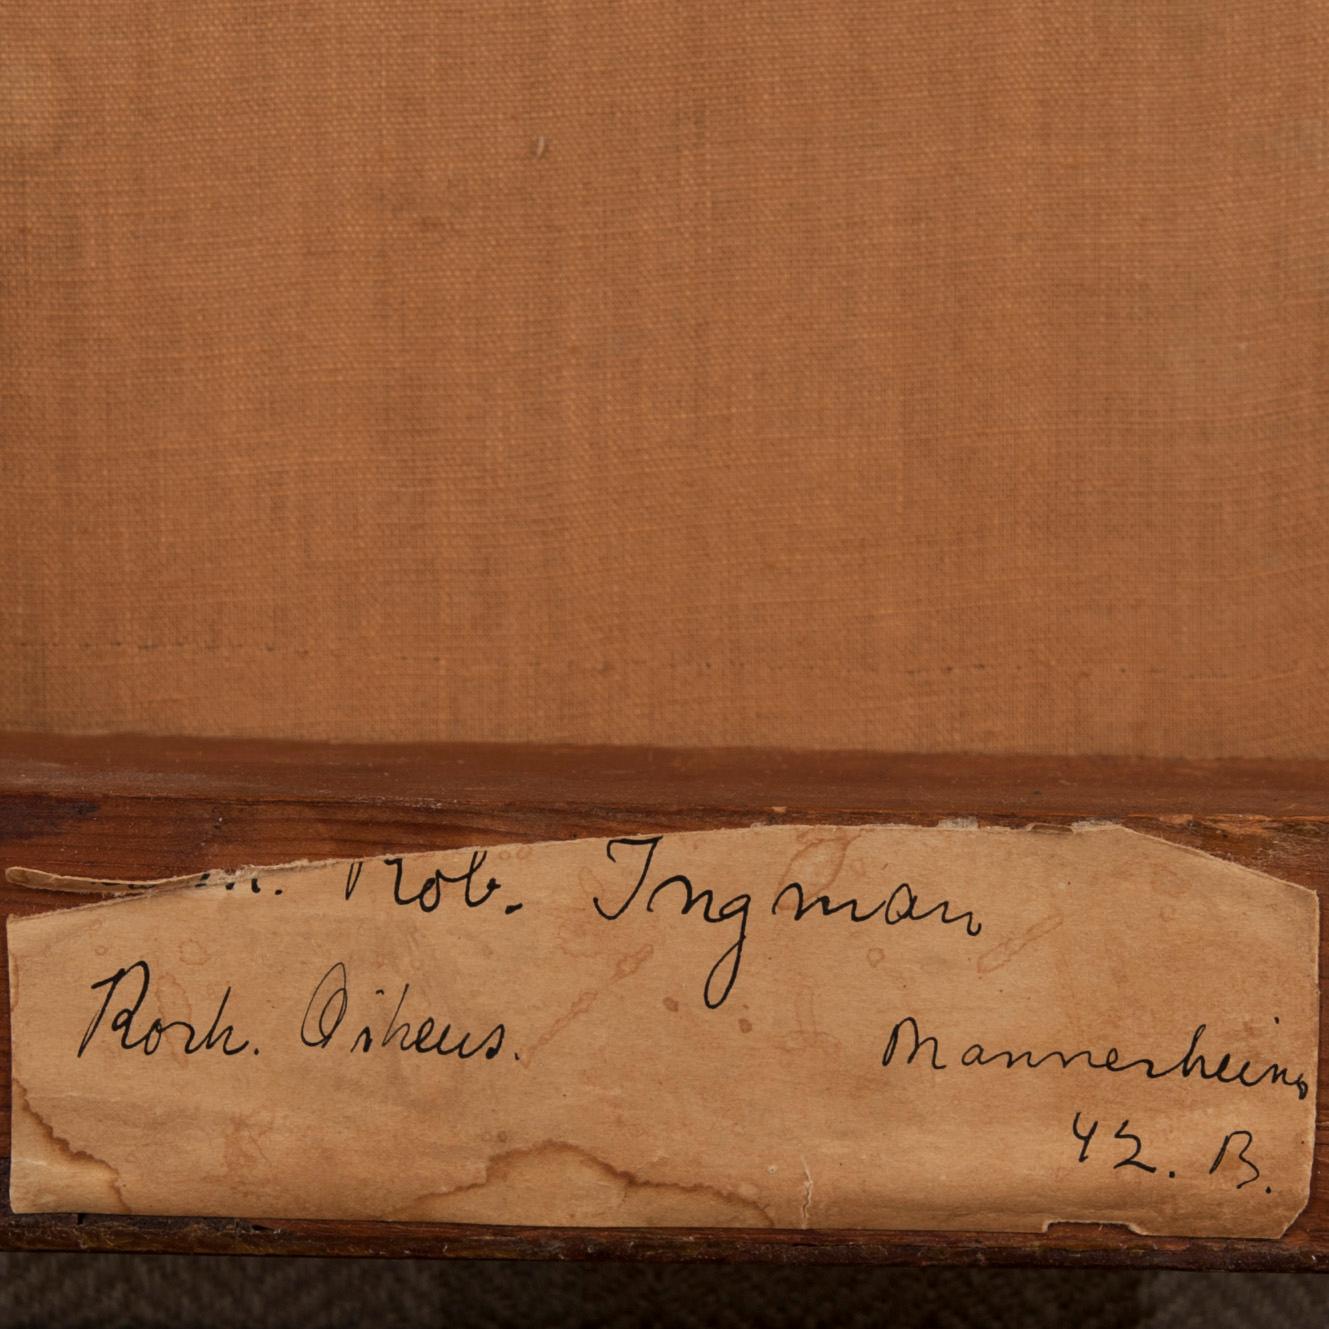 Rob. Ingman
Rosk. Oikeus. Mannerheim
42. B.